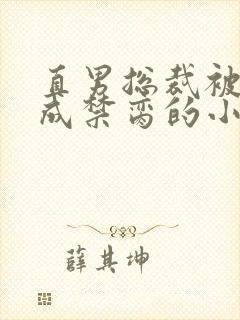 真男总裁被
成禁脔的小
薛其坤